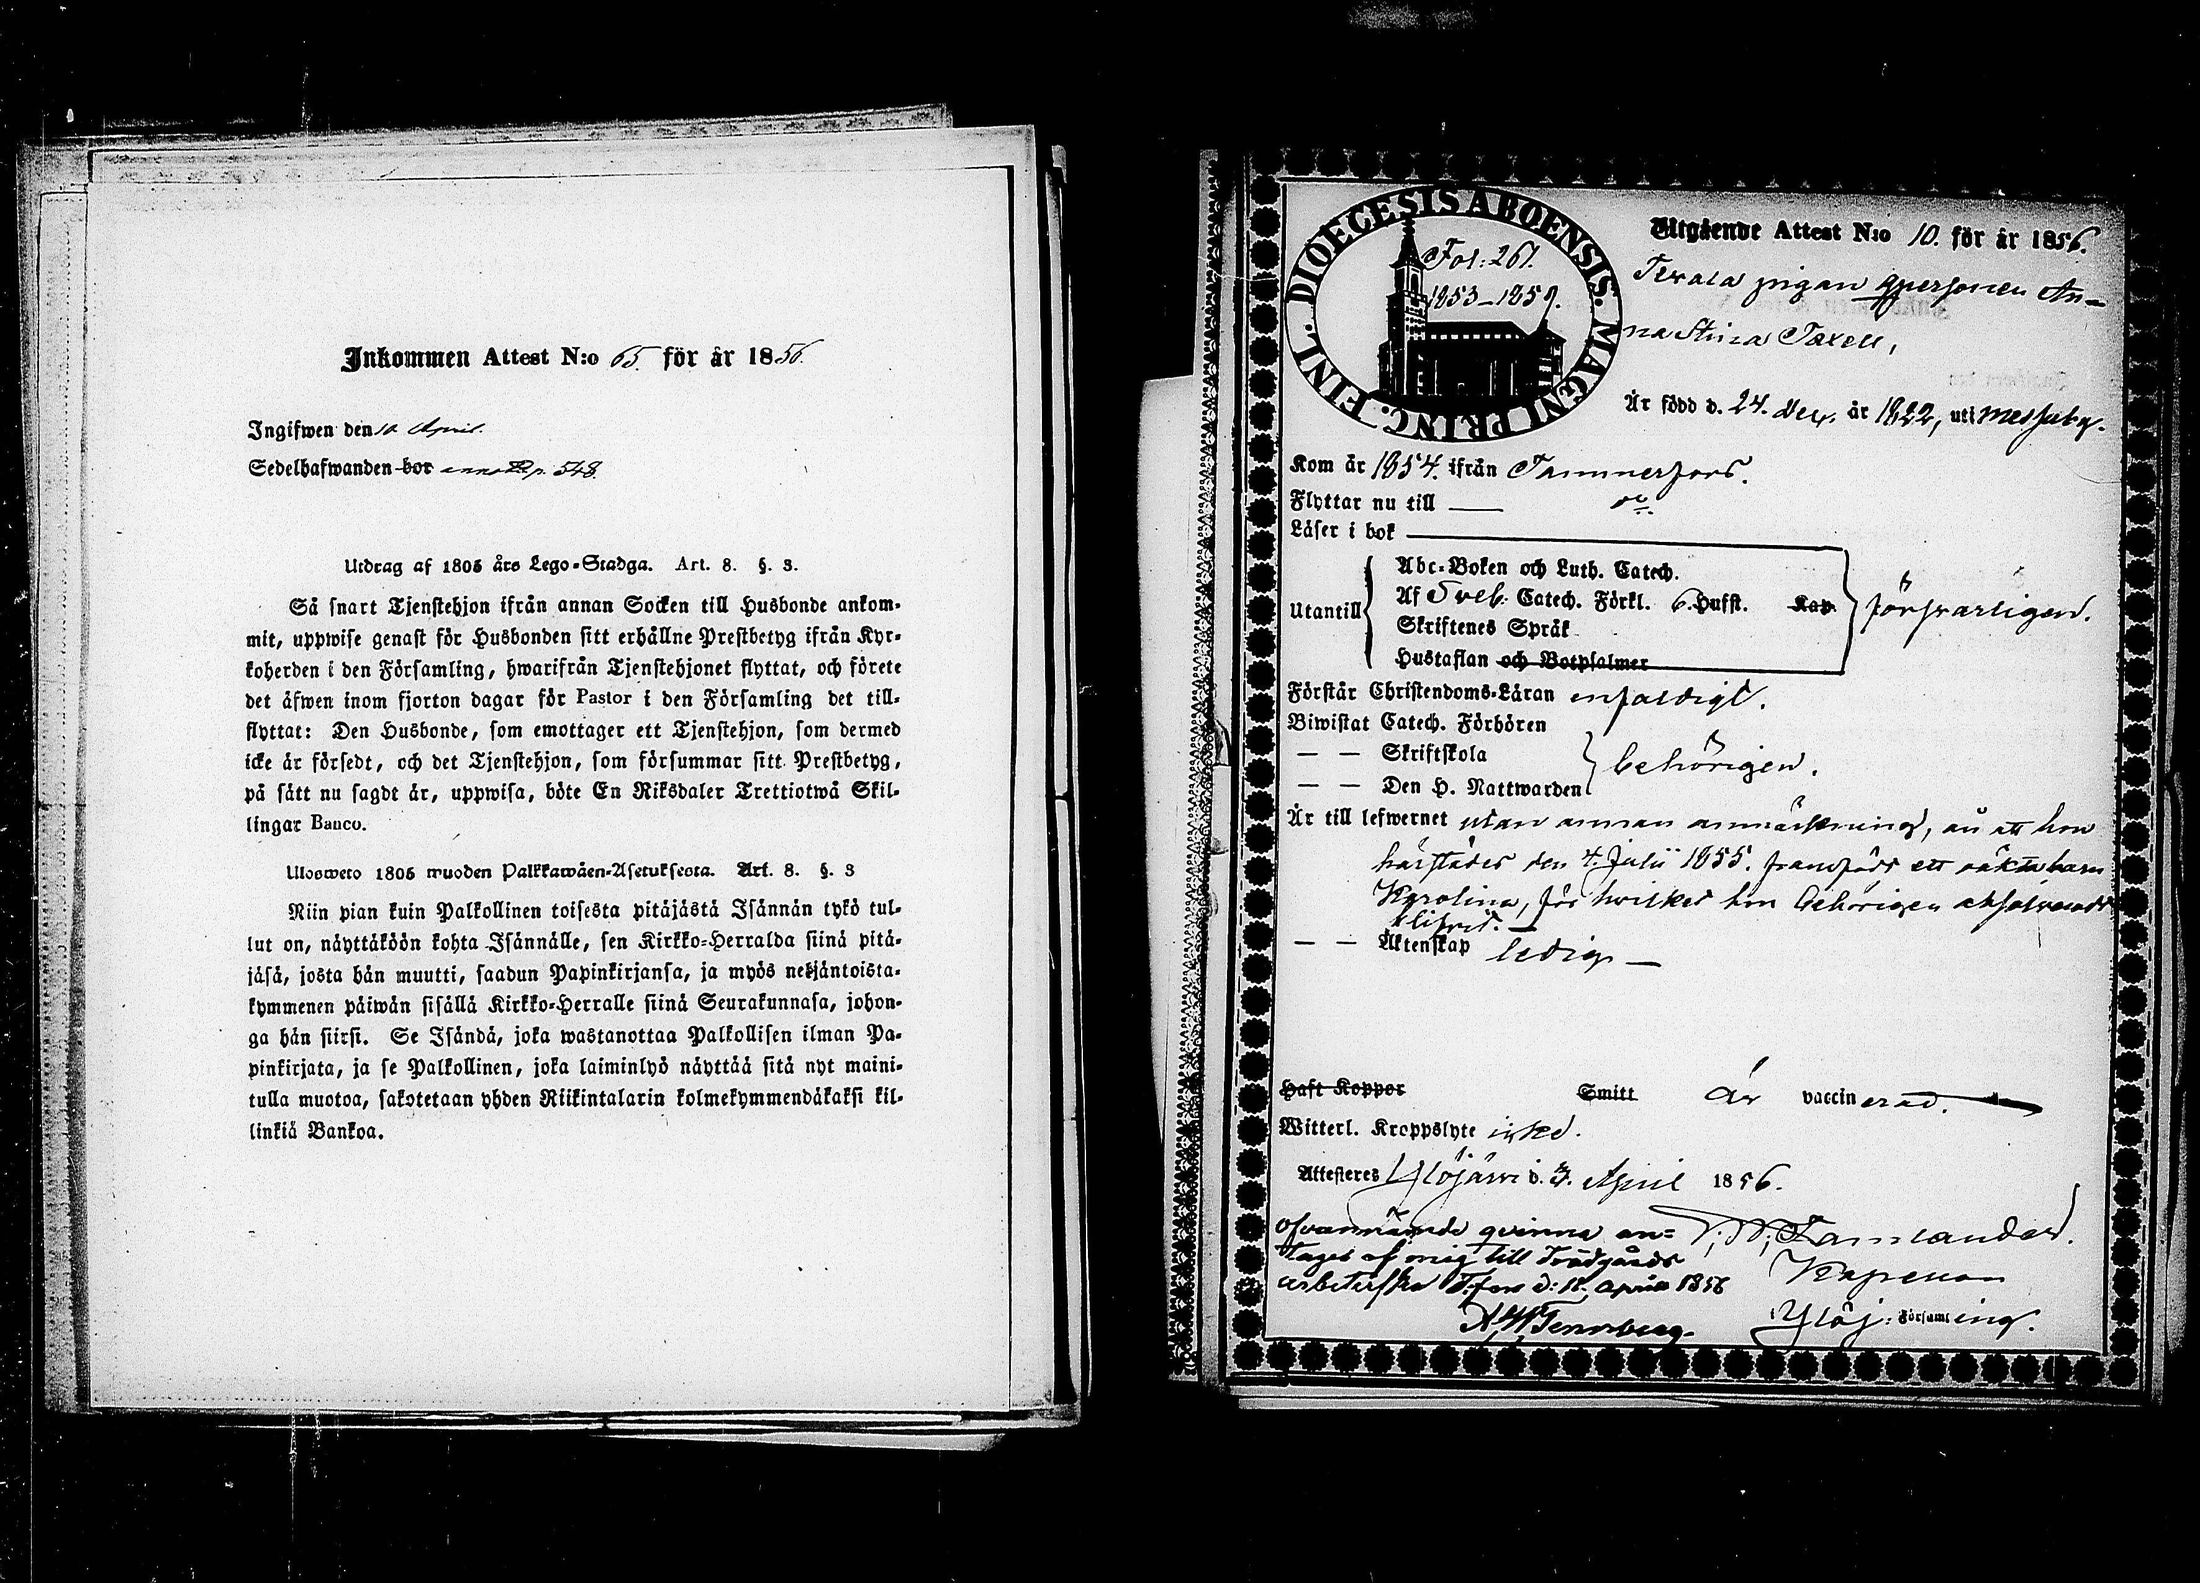 Inkommen Attest N:o 65. för år 1856.
Ingifwen den 10 April.
Sedelhafwanden bor p. 548.
Utdrag af 1805 års Lego-Stadga. Art. 8. §. 3.
Så snart Tjenstehjon ifrån annan Socken till Husbonde ankom-
mit, uppwise genast för Husbonden sitt erhållne Prestbetyg ifrån Kyr-
koherden i den Församling, hwarifrån Tjenstehjonet flyttat, och förete
det äfwen inom fjorton dagar för Pastor i den Församling det till-
flyttat: Den Husbonde, som emottager ett Tjenstehjon, som dermed
icke är försedt, och det Tjenstehjon, som försummar sitt Prestbetyg,
på sätt nu sagdt är, uppwisa, böte En Riksdaler Trettiotwå Skil-
lingar Banco.
Ulosweto 1805 wuoden Palkkawäen-Asetuksesta. Art. 8. §. 3
Niin pian kuin Palkollinen toisesta pitäjästä Isännän tykö tul-
lut on, näyttäköön kohta Isännälle, sen Kirkko-Herralda siinä pitä-
jäsä, josta hän muutti, saadun Papinkirjansa, ja myös neljäntoista-
kymmenen päiwän sisällä Kirkko-Herralle siinä Seurakunnasa, johon-
ga hän siirsi. Se Isändä, joka wastanottaa Palkollisen ilman Pa-
pinkirjata, ja se Palkollinen, joka laiminlyö näyttää sitä nyt maini-
tulla muotoa, sakotetaan yhden Riikintalarin kolmekymmendäkaksi kil-
linkiä Bankoa.
DIOECESIS ABOENSIS. MAGNI PRINC. FINL.
Fol: 261.
1853-1859.
Utgående Attest N:o 10. för år 1856.
pigan qpersonen An-
na Stina Taxell,
Är född d. 24. Dec. år 1822, uti Messuby.
Kom år 1854. ifrån Tammerfors.
Flyttar nu till — d:o
Läser i bok
Utantill
Abc-Boken och Luth. Catech.
Af Sveb. Catech. Förkl. 6. Hufst. Kap
Skriftenes Språk
Hustaflan och Botpsalmer
försvarligen.
Förstår Christendoms-Läran enfaldigt.
Biwistat Catech. Förhören
— — Skriftskola
— — Den H. Nattwarden
behörigen.
Är till lefwernet utan annan anmärkning, än att hon
härstädes den 4. Julii 1855. framfödt ett oäkta barn
Karolina, för hvilket hon behörigen absolverad
blifvit.
— — Äktenskap ledig —
Haft Koppor Smitt är vaccinerad.
Witterl. Kroppslyte icke.
Attesteres Ylöjärvi d. 3. April 1856.
Lamander.
Kapellan
Ylöj: Församling.
Ofvannämnde qvinna an-
tages af mig till Trädgårds
arbeterska T.fors d: 11. April 1856